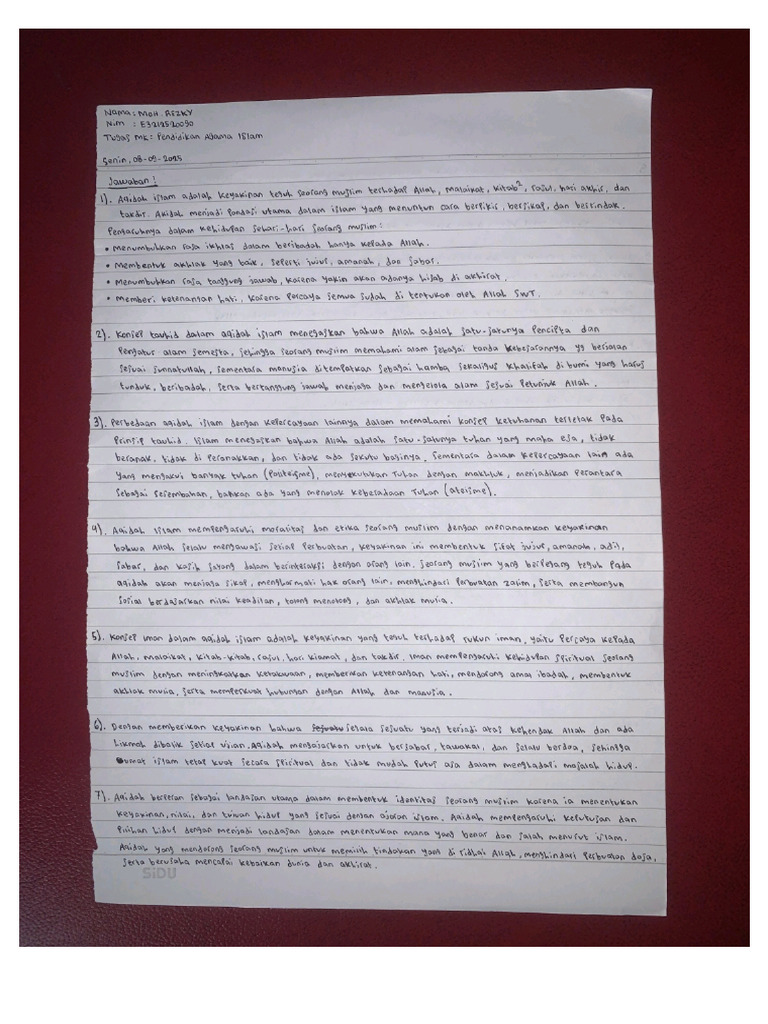 Nama : MOH. RIZKY
Nim : E3212520090
Tugas MK : Pendidikan Agama Islam
Senin, 08-09-2025
Jawaban !
1). Aqidah islam adalah keyakinan teguh seorang muslim terhadap Allah, malaikat, kitab², rasul, hari akhir, dan
takdir. Akidah menjadi pondasi utama dalam islam yang menuntun cara berpikir, bersikap, dan bertindak.
Pengaruhnya dalam kehidupan sehari-hari seorang muslim :
• Menumbuhkan rasa ikhlas dalam beribadah hanya kepada Allah.
• Membentuk akhlak yang baik, seperti jujur, amanah, dan sabar.
• Menumbuhkan rasa tanggung jawab, karena yakin akan adanya hisab di akhirat.
• Memberi ketenangan hati, karena percaya semua sudah di tentukan oleh Allah SWT.
2). Konsep tauhid dalam aqidah islam menegaskan bahwa Allah adalah satu-satunya Pencipta dan
Pengatur alam semesta, sehingga seorang muslim memahami alam sebagai tanda kebesarannya yg berjalan
sesuai sunnatullah, sementara manusia ditempatkan sebagai hamba sekaligus khalifah di bumi yang harus
tunduk, beribadah, serta bertanggung jawab menjaga dan mengelola alam sesuai Petunjuk Allah.
3). Perbedaan aqidah islam dengan kepercayaan lainnya dalam memahami konsep ketuhanan terletak Pada
Prinsip tauhid. Islam menegaskan bahwa Allah adalah satu-satunya tuhan yang maha esa, tidak
beranak, tidak di peranakkan, dan tidak ada sekutu baginya, Sementara dalam kepercayaan lain ada
yang mengakui banyak tuhan (Politeisme), menyekutukan Tuhan dengan makhluk, menjadikan Perantara
sebagai sesembahan, bahkan ada yang menolak keberadaan Tuhan (ateisme).
4). Aqidah Islam mempengaruhi moralitas dan etika seorang muslim dengan menanamkan keyakinan
bahwa Allah selalu mengawasi setiap Perbuatan, keyakinan ini membentuk sifat jujur, amanah, adil,
sabar, dan kasih sayang dalam berinteraksi dengan orang lain. Seorang muslim yang berpegang teguh Pada
aqidah akan menjaga sikap, menghormati hak orang lain, menghindari Perbuatan zalim, serta membangun
sosial berdasarkan nilai keadilan, tolong menolong, dan akhlak mulia.
5). Konsep Iman dalam aqidah islam adalah keyakinan yang teguh terhadap rukun iman, yaitu Percaya kepada
Allah, malaikat, kitab-kitab, rasul, hari kiamat, dan takdir. Iman mempengaruhi kehidupan spiritual seorang
muslim dengan meningkatkan ketakwaan, memberikan ketenangan hati, mendorong amal ibadah, membentuk
akhlak mulia, serta memperkuat hubungan dengan Allah dan manusia.
6). Dengan memberikan keyakinan bahwa segala sesuatu yang terjadi atas kehendak Allah dan ada
hikmah dibalik setiap ujian. Aqidah mengajarkan untuk bersabar, tawakal, dan selalu berdoa, sehingga
umat islam tetap kuat secara spiritual dan tidak mudah Putus asa dalam menghadapi masalah hidup.
7). Aqidah berperan sebagai landasan utama dalam membentuk identitas seorang muslim karena ia menentukan
keyakinan, nilai, dan tujuan hidup yang sesuai dengan ajaran islam. Aqidah mempengaruhi keputusan dan
Pilihan hidup dengan menjadi landasan dalam menentukan mana yang benar dan salah menurut islam.
Aqidah yang mendorong seorang muslim untuk memilih tindakan yang di ridhai Allah, menghindari Perbuatan dosa,
serta berusaha mencapai kebaikan dunia dan akhirat.
SiDU